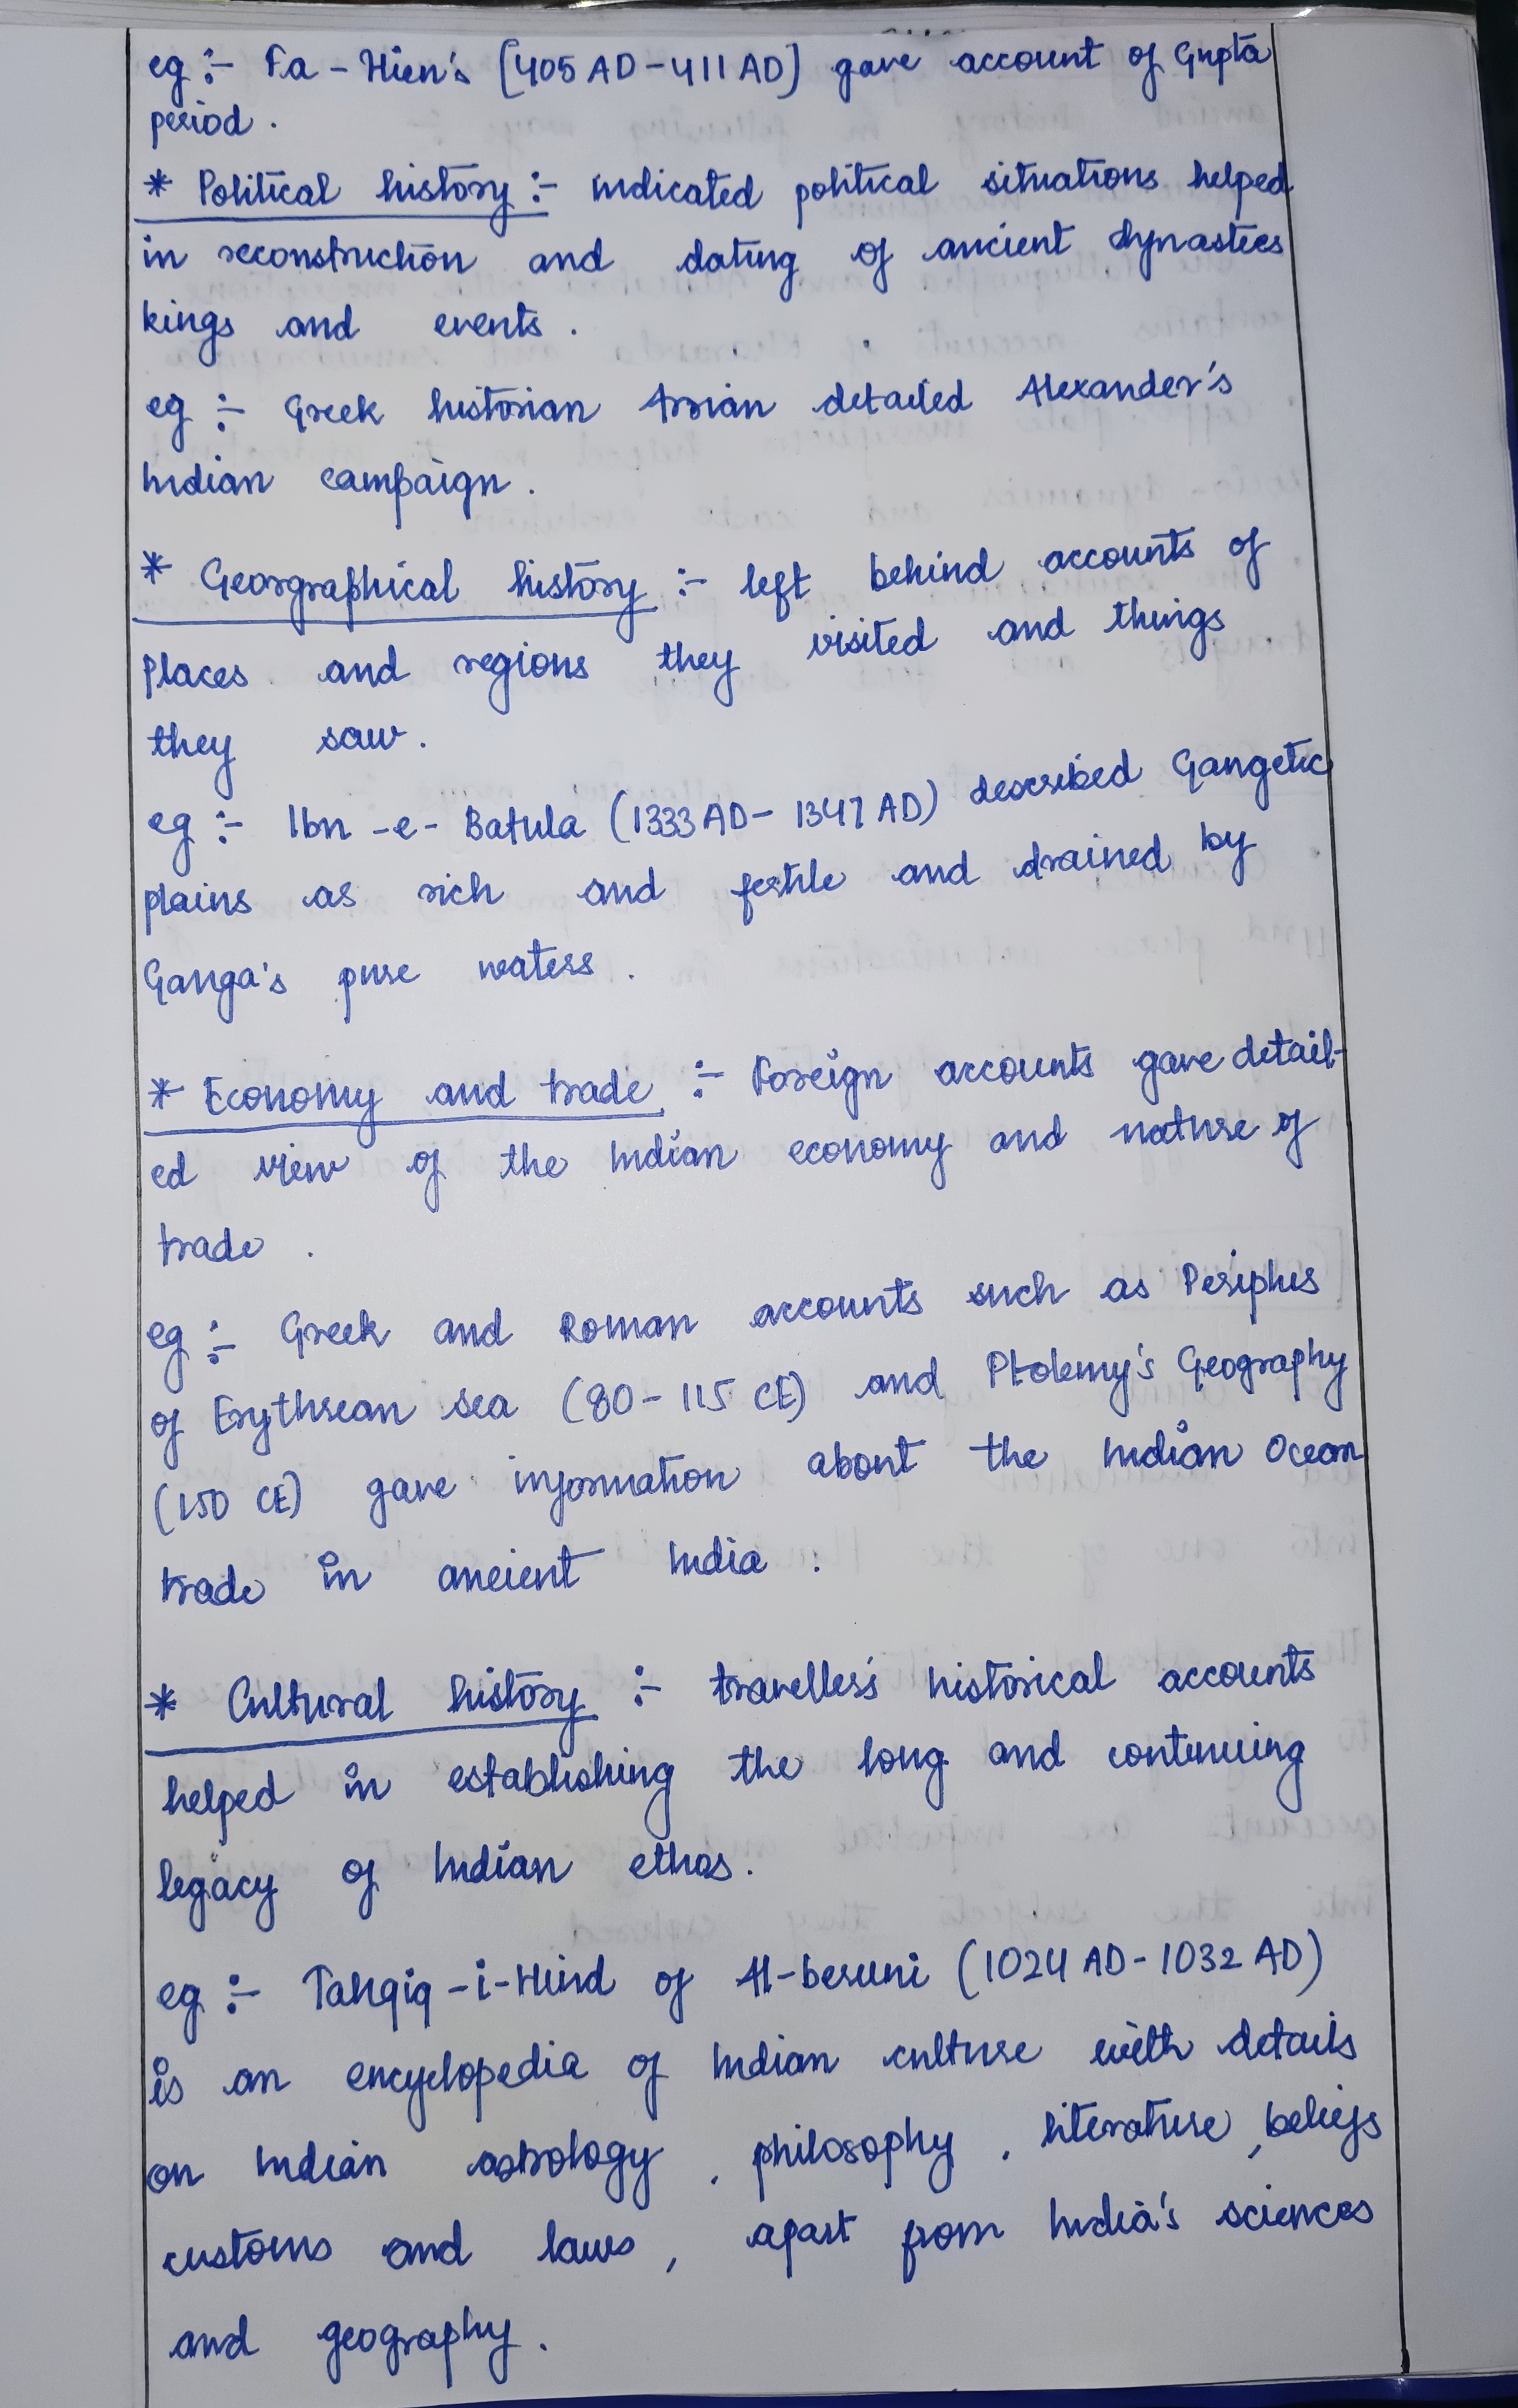 eg :- Fa-Hien's [405 AD-411 AD] gave account of Gupta
period.
* Political history :- indicated political situations helped
in reconstruction and dating of ancient dynasties
kings and events.
eg :- Greek historian Arrian detailed Alexander's
Indian campaign.
* Georgraphical history :- left behind accounts of
places and regions they visited and things
they saw.
eg :- Ibn -e- Batula (1333 AD- 1347 AD) described Gangetic
plains as rich and fertile and drained by
Ganga's pure waters.
* Economy and trade :- Foreign accounts gave detail-
ed view of the Indian economy and nature of
trade.
eg :- Greek and Roman accounts such as Periplus
of Erythrean sea (80-115 CE) and Ptolemy's Geography
(150 CE) gave information about the Indian Ocean
trade in ancient India.
* Cultural history :- traveller's historical accounts
helped in establishing the long and continuing
legacy of Indian ethos.
eg :- Tahqiq-i-Hind of Al-beruni (1024 AD-1032 AD)
is an encyclopedia of Indian culture with details
on Indian astrology, philosophy, literature, beliefs
customs and laws, apart from India's sciences
and geography.